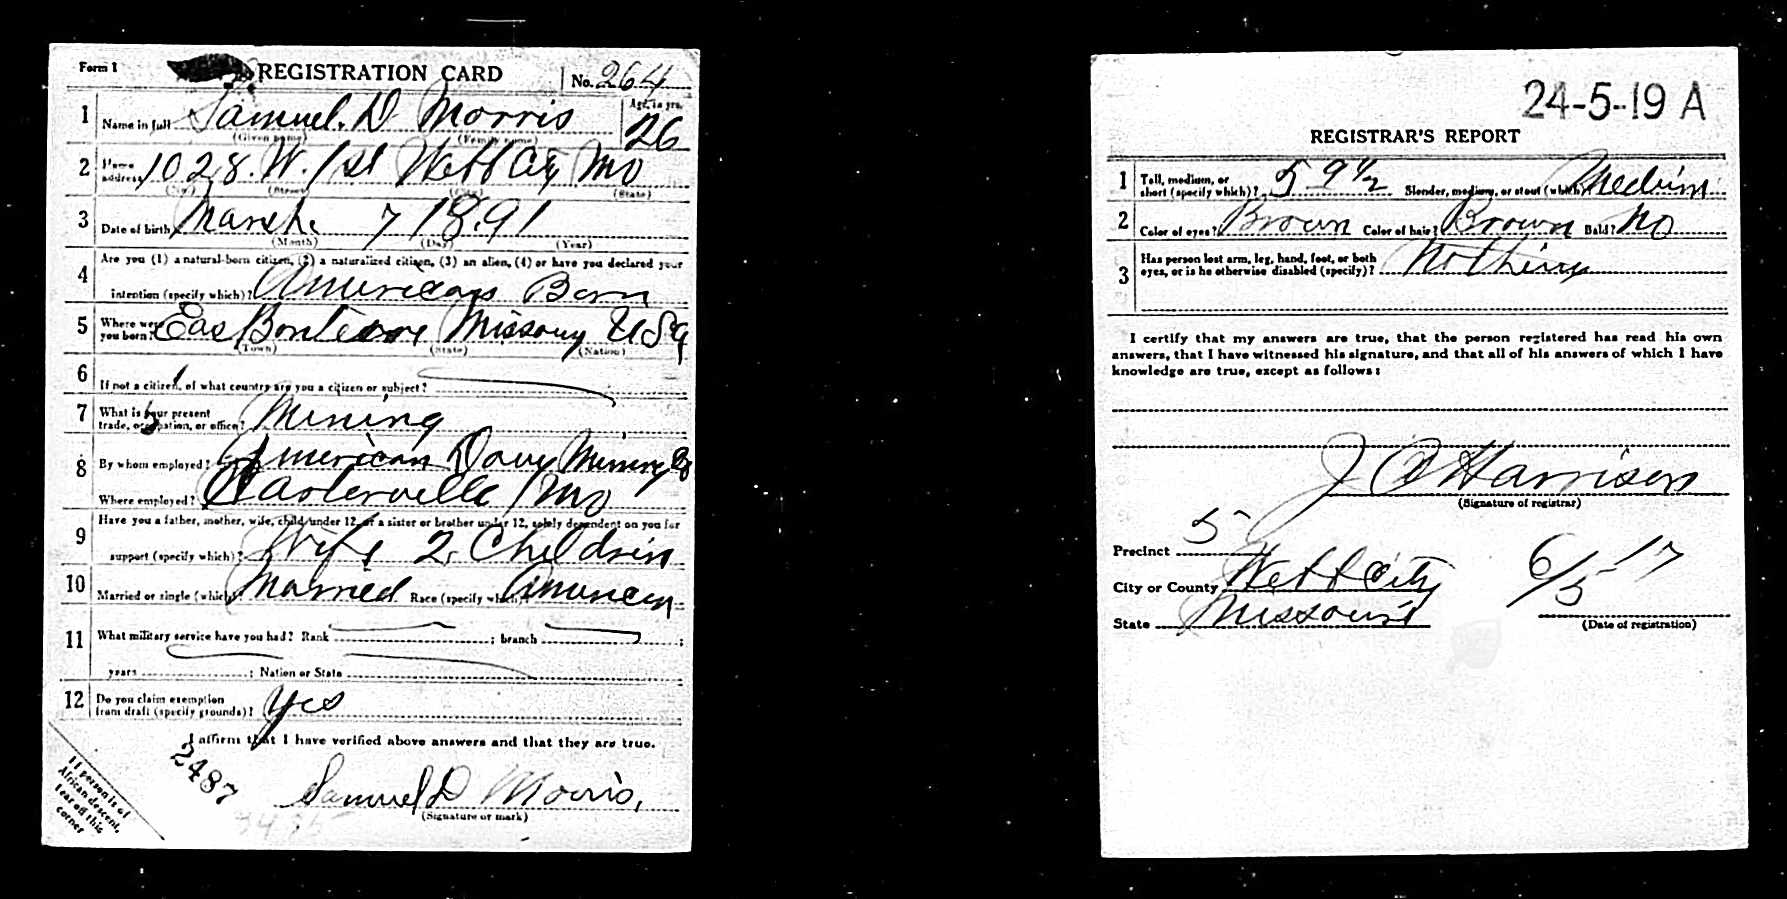 Form 1 REGISTRATION CARD No. 264
1 Name in full Samuel. D Morris Age, in yrs. 26
(Given name) (Family name)
2 Home address 1028. W. 1st Webb City Mo
(No.) (Street) (City) (State)
3 Date of birth March 7 1891
(Month) (Day) (Year)
4 Are you (1) a natural-born citizen, (2) a naturalized citizen, (3) an alien, (4) or have you declared your
intention (specify which)? American Born
5 Where were you born? Missoury USA
(Town) (State) (Nation)
6 If not a citizen, of what country are you a citizen or subject?
7 What is your present trade, occupation, or office? Mining
8 By whom employed? American Davy Mining Co
Where employed? Carterville Mo
9 Have you a father, mother, wife, child under 12, or a sister or brother under 12, solely dependent on you for
support (specify which)? Wife 2 Children
10 Married or single (which)? Married Race (specify which)? American
11 What military service have you had? Rank ; branch ;
years ; Nation or State
12 Do you claim exemption from draft (specify grounds)? Yes
I affirm that I have verified above answers and that they are true.
2487
Samuel D Morris,
(Signature or mark)
If person is of
African descent,
tear off this
corner
24-5-19 A
REGISTRAR'S REPORT
1 Tall, medium, or short (specify which)? 5 9 1/2 Slender, medium, or stout (which)? Medium
2 Color of eyes? Brown Color of hair? Brown Bald? No
3 Has person lost arm, leg, hand, foot, or both eyes, or is he otherwise disabled (specify)? Nothing
I certify that my answers are true, that the person registered has read his own
answers, that I have witnessed his signature, and that all of his answers of which I have
knowledge are true, except as follows:
J O Harrison
(Signature of registrar)
Precinct 5
City or County Webb City 6/5-17
State Missouri
(Date of registration)